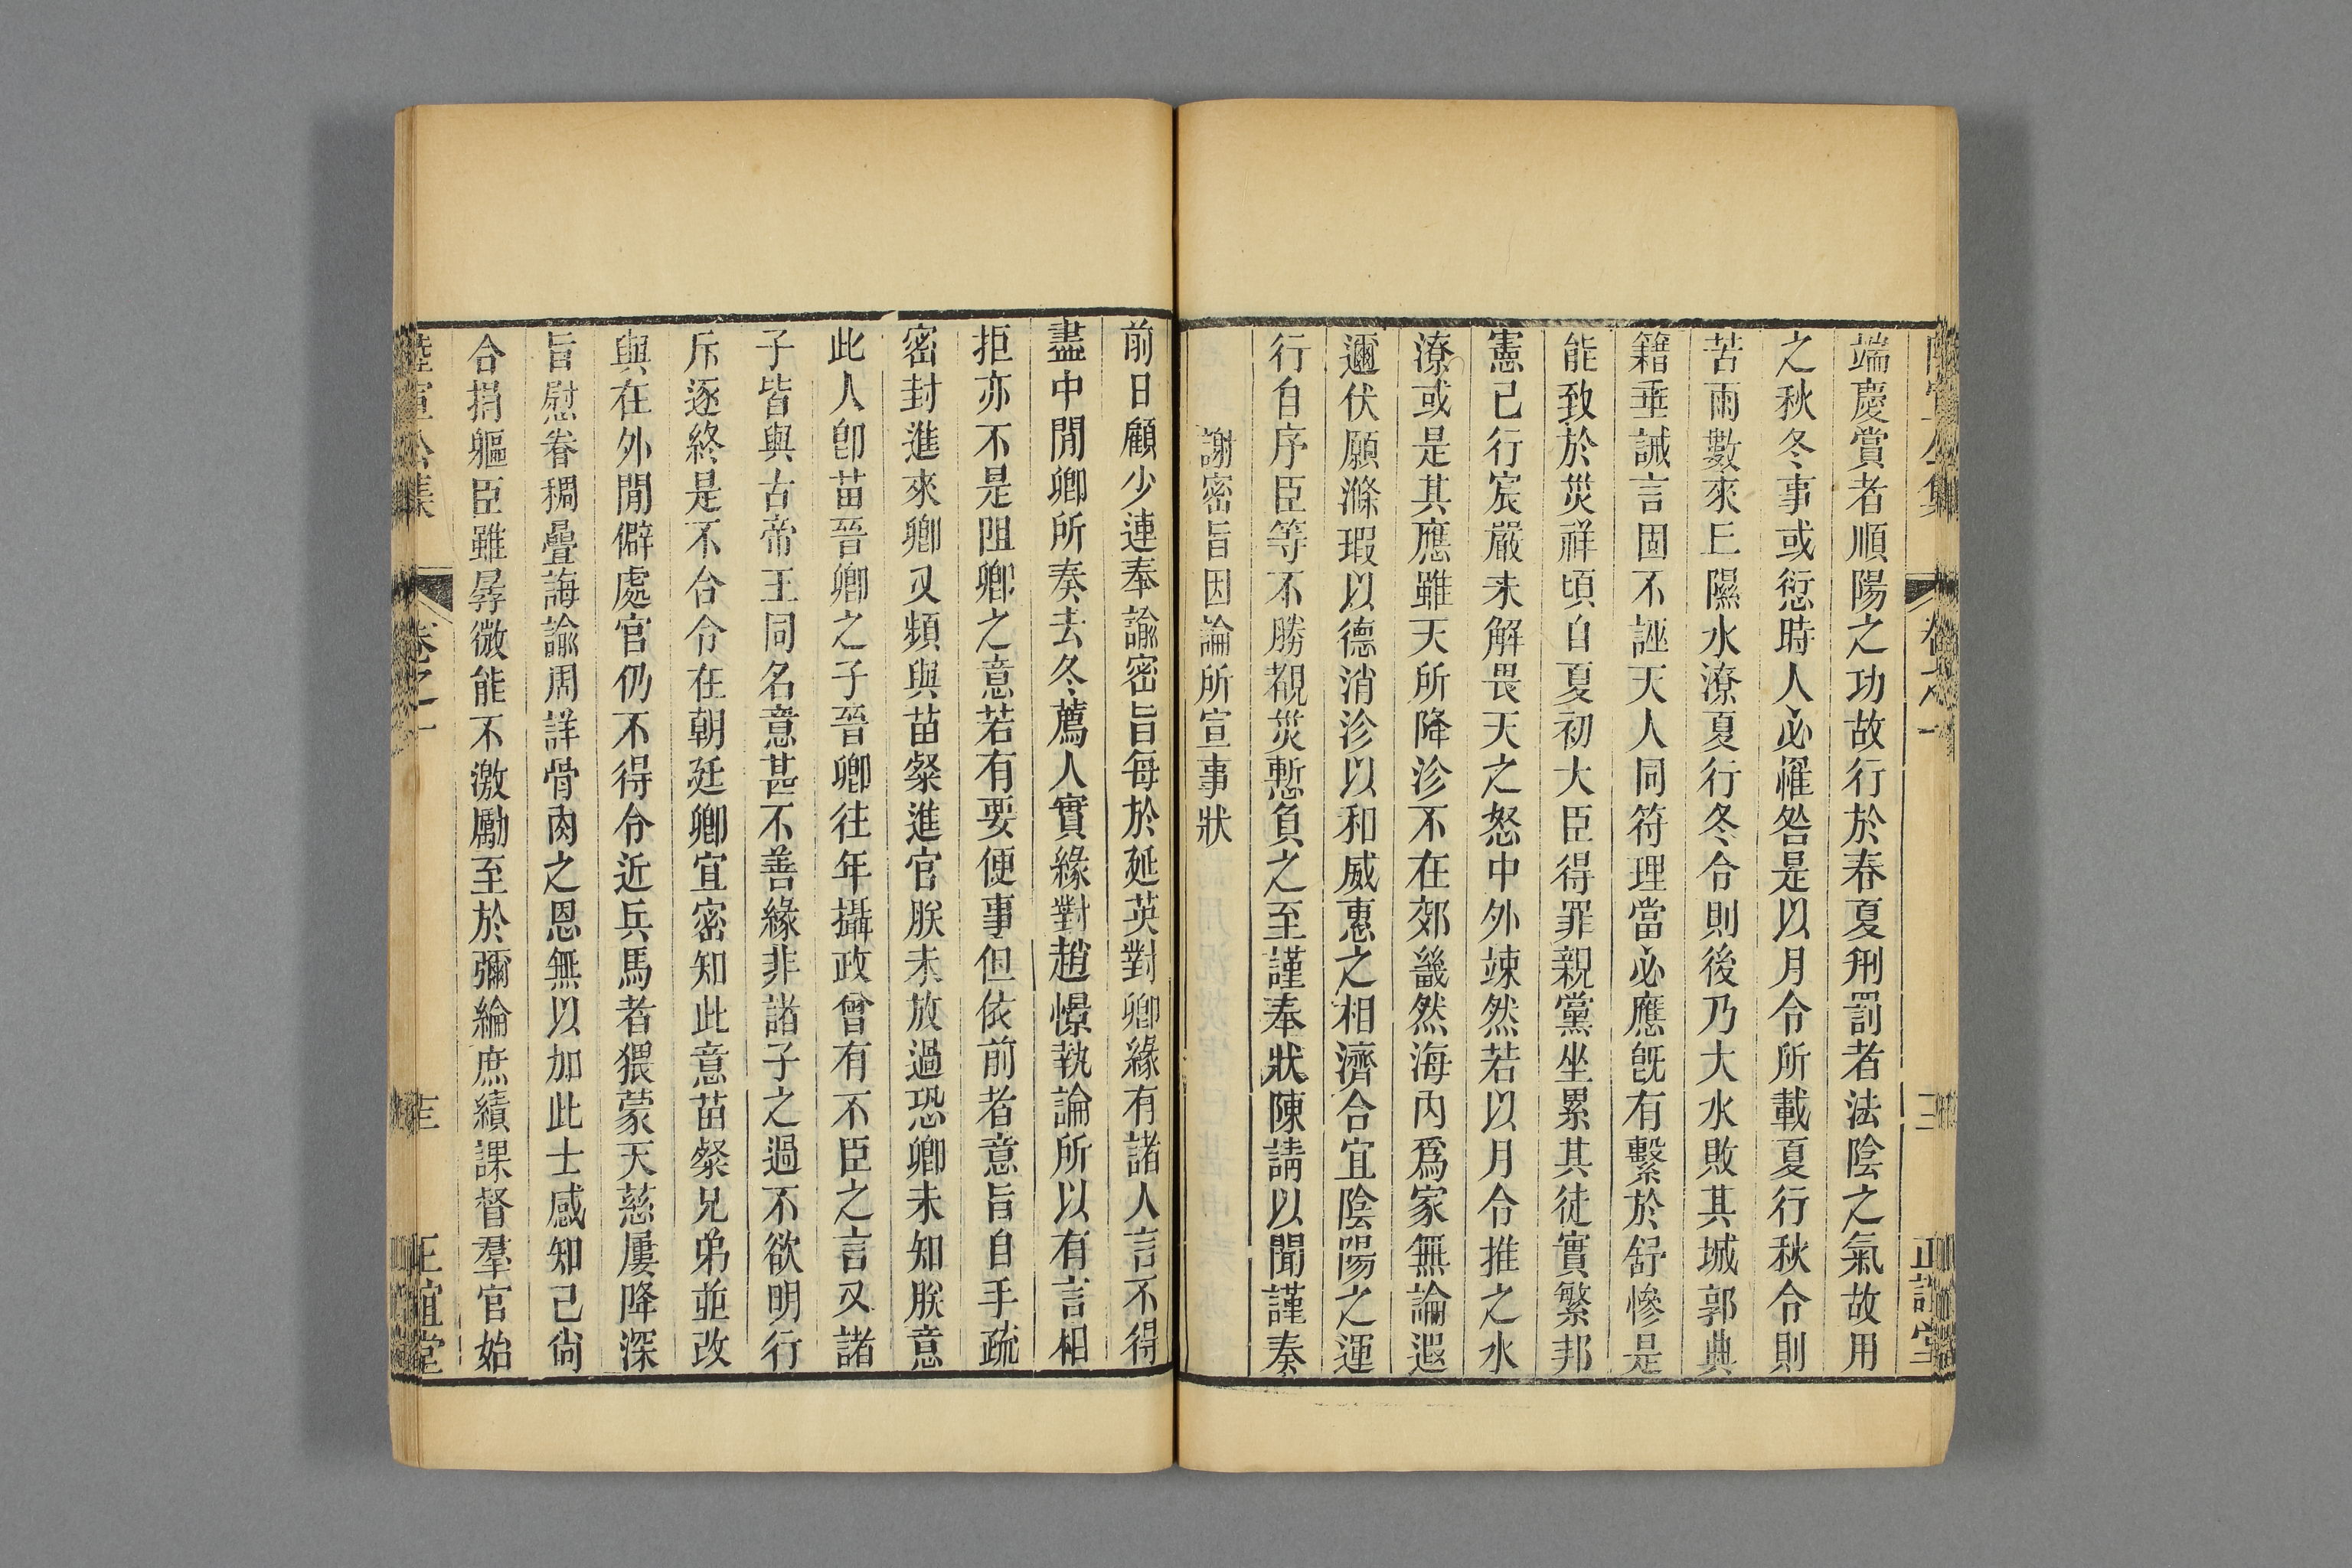 端慶賞者順陽之功故行於春夏刑罰者法陰之氣故用
之秋冬事或愆時人必罹咎是以月令所載夏行秋令則
苦雨數來上隰水潦夏行冬令則後乃大水敗其城郭典
籍垂誡言固不誣天人同符理當必應旣有繫於舒慘是
能致於災祥頃自夏初大臣得罪親黨坐累其徒實繁邦
憲已行宸嚴未解畏天之怒中外竦然若以月令推之水
潦或是其應雖天所降沴不在郊畿然海內爲家無論遐
邇伏願滌瑕以德消沴以和威惠之相濟合宜陰陽之運
行自序臣等不勝覩災慙負之至謹奉狀陳請以聞謹奏
謝密旨因論所宣事狀
前日顧少連奉諭密旨每於延英對卿緣有諸人言不得
盡中閒卿所奏去冬薦人實緣對趙憬執論所以有言相
拒亦不是阻卿之意若有要便事但依前者意旨自手疏
密封進來卿又頻與苗粲進官朕未放過恐卿未知朕意
此人卽苗晉卿之子晉卿往年攝政曾有不臣之言又諸
子皆與古帝王同名意甚不善緣非諸子之過不欲明行
斥逐終是不合令在朝廷卿宜密知此意苗粲兄弟並改
與在外閒僻處官仍不得令近兵馬者猥蒙天慈屢降深
旨慰眷稠疊誨諭周詳骨肉之恩無以加此士感知己尙
合捐軀臣雖孱微能不激勵至於彌綸庶績課督羣官始
陸宣公集 卷之十一 三 正誼堂